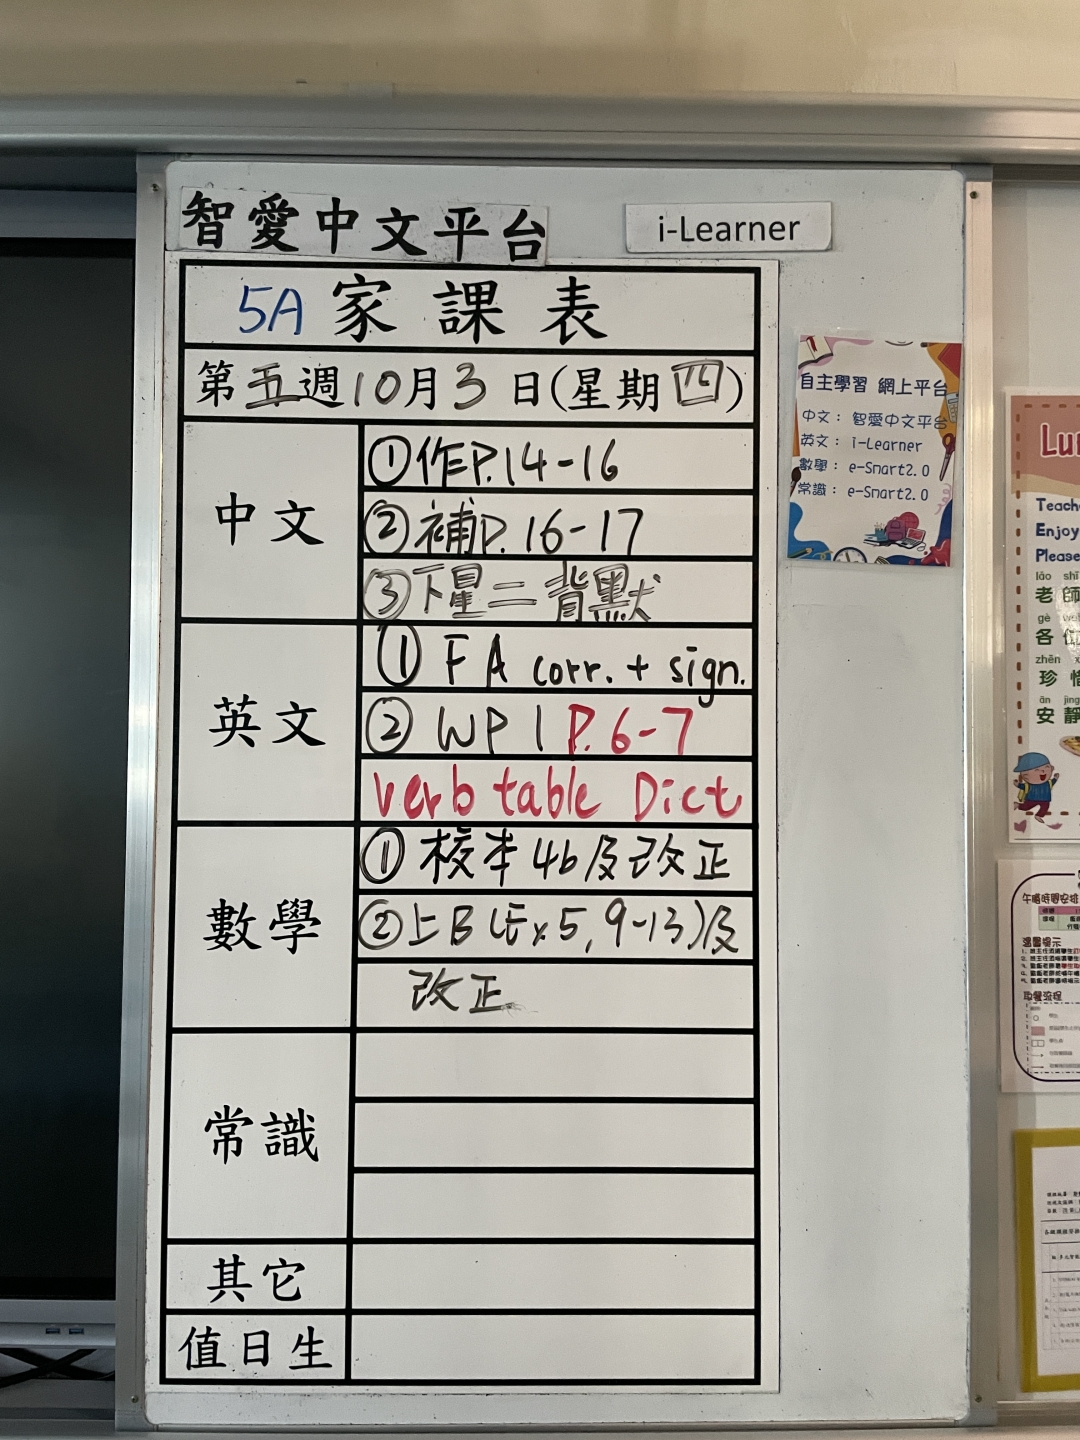 智愛中文平台
i-Learner
5A 家課表
第五週10月3日(星期四)
中文
①作P.14-16
②補P.16-17
③下星二背默
英文
① FA corr. + sign.
② WP 1 P.6-7
Verb table Dict
數學
① 校本4b及改正
②上B(Ex5,9-13)及
改正
常識
其它
值日生
自主學習 網上平台
中文： 智愛中文平台
英文： i-Learner
數學： e-Smart2.0
常識： e-Smart2.0
Enjoy
Please
lǎo
老師
gè
各
zhēn
珍
ān jìng
安靜
午膳時間安排
溫馨提示
取餐流程